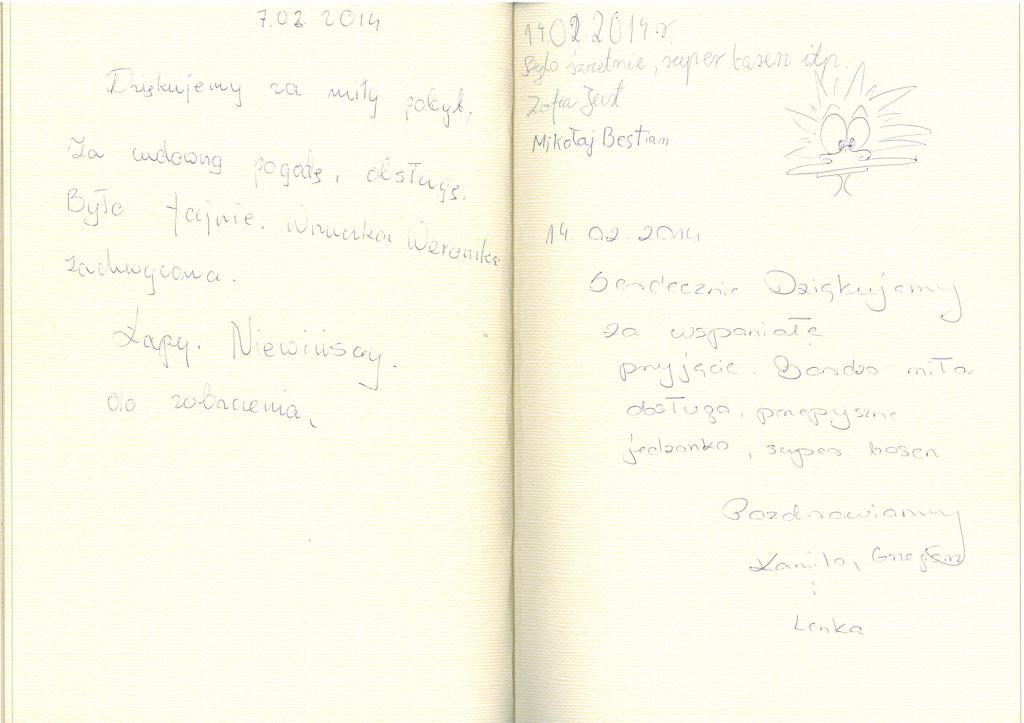 7.02.2014
Dziękujemy za miły pobyt,
Za cudowną pogodę, obsługę.
Było fajnie. Wnuczka Weronika
zachwycona.
Łapy.
do zobaczenia,
14.02.2014r.
Było świetnie, super basen itp.
Zofia
Mikołaj Bestian
14.02.2014
Serdecznie Dziękujemy
za wspaniałe
przyjęcie. Bardzo miła
obsługa, przepyszne
jedzonko, super basen
Pozdrawiamy
Kamila,
i
Lenka